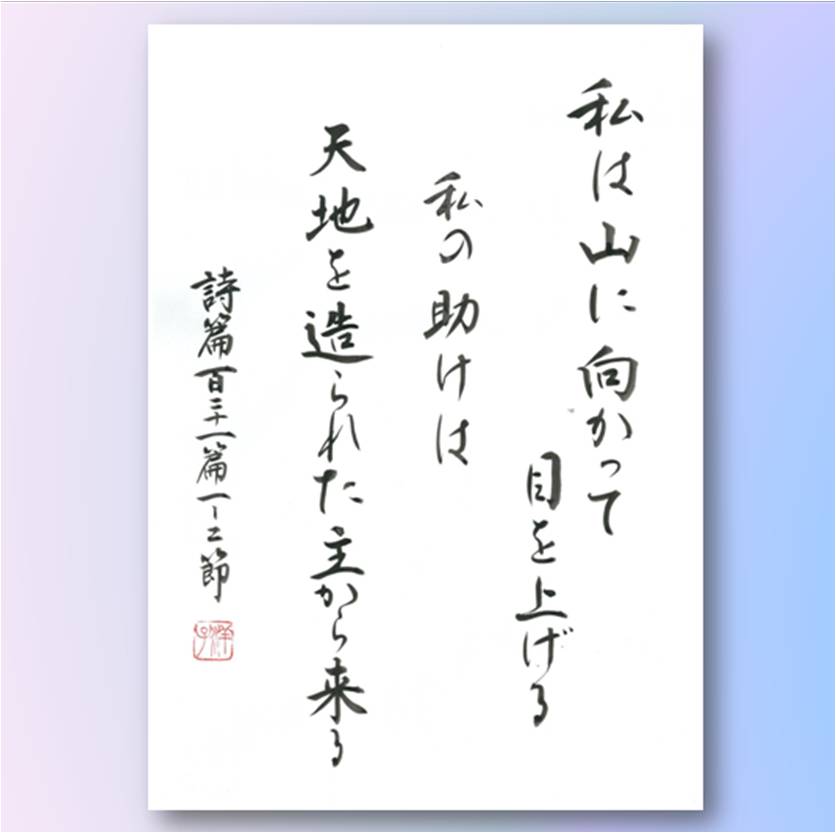 私は山に向かって
目を上げる
私の助けは
天地を造られた主から来る
詩篇百二十一篇一-二節